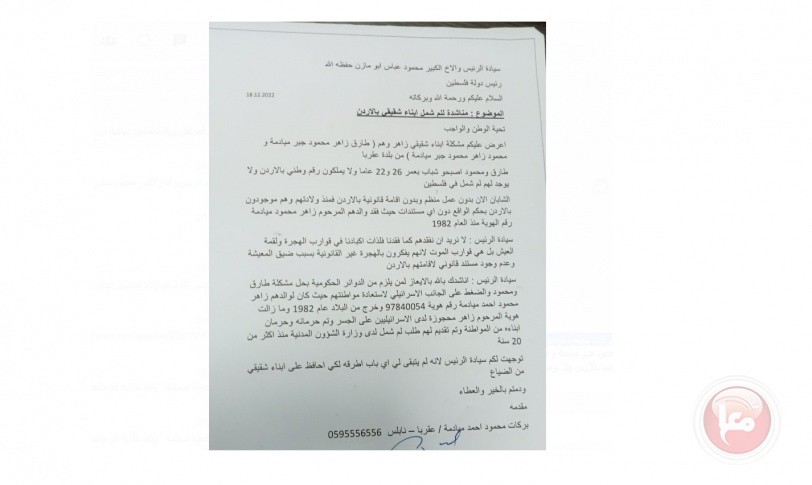 سيادة الرئيس والاخ الكبير محمود عباس ابو مازن حفظه الله
رئيس دولة فلسطين
السلام عليكم ورحمة الله وبركاته
18.12.2022
الموضوع : مناشدة للم شمل ابناء شقيقي بالاردن
تحية الوطن والواجب
اعرض عليكم مشكلة ابناء شقيقي زاهر وهم ( طارق زاهر محمود جبر ميادمة و
محمود زاهر محمود جبر ميادمة ) من بلدة عقربا
طارق ومحمود اصبحو شباب بعمر 26 و22 عاما ولا يملكون رقم وطني بالاردن ولا
يوجد لهم لم شمل في فلسطين
الشابان الان بدون عمل منظم وبدون اقامة قانونية بالاردن فمنذ ولادتهم وهم موجودون
بالاردن بحكم الواقع دون اي مستندات حيث فقد والدهم المرحوم زاهر محمود ميادمة
رقم الهوية منذ العام 1982
سيادة الرئيس : لا نريد ان نفقدهم كما فقدنا فلذات اكبادنا في قوارب الهجرة ولقمة
العيش بل هي قوارب الموت لانهم يفكرون بالهجرة غير القانونية بسبب ضيق المعيشة
وعدم وجود مستند قانوني لاقامتهم بالاردن
سيادة الرئيس : اناشدك بالله بالايعاز لمن يلزم من الدوائر الحكومية بحل مشكلة طارق
ومحمود والضغط على الجانب الاسرائيلي لاستعادة مواطنتهم حيث كان لوالدهم زاهر
محمود احمد ميادمة رقم هوية 97840054 وخرج من البلاد عام 1982 وما زالت
هوية المرحوم زاهر محجوزة لدى الاسرائيليين على الجسر وتم حرمانه وحرمان
ابناءه من المواطنة وتم تقديم لهم طلب لم شمل لدى وزارة الشؤون المدنية منذ اكثر من
20 سنة
توجهت لكم سيادة الرئيس لانه لم يتبقى لي اي باب اطرقه لكي احافظ على ابناء شقيقي
من الضياع
ودمتم بالخير والعطاء
مقدمه
بركات محمود احمد ميادمة / عقربا – نابلس 0595556556
معا